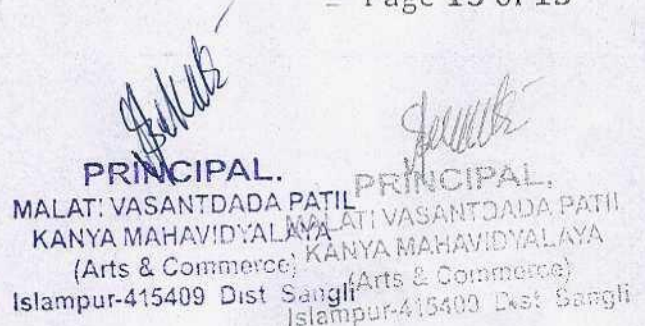 Page 15 of 15
PRINCIPAL.
MALATI VASANTDADA PATIL
KANYA MAHAVIDYALAYA
(Arts & Commerce)
Islampur-415409 Dist Sangli
PRINCIPAL,
MALATI VASANTDADA PATIL
KANYA MAHAVIDYALAYA
(Arts & Commerce)
Islampur-415409 Dist Sangli